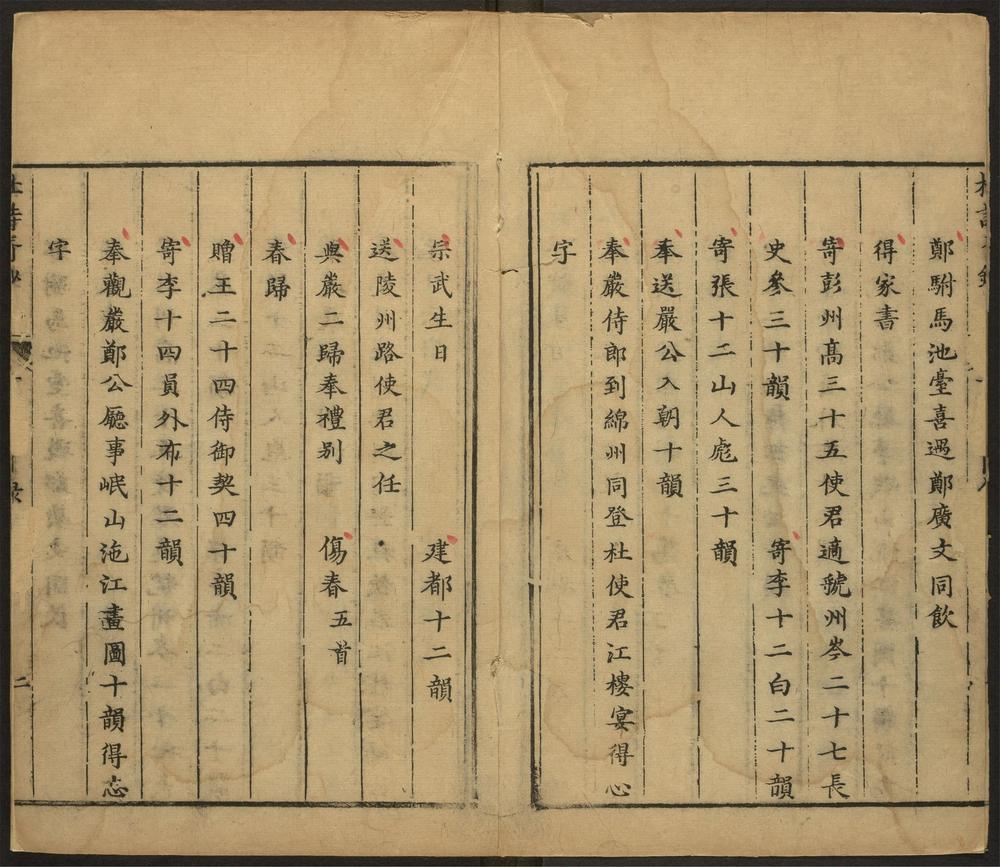 鄭駙馬池臺喜遇鄭廣文同飲
得家書
寄彭州高三十五使君適虢州岑二十七長
史參三十韻 寄李十二白二十韻
寄張十二山人彪三十韻
奉送嚴公入朝十韻
奉嚴侍郎到綿州同登杜使君江樓宴得心
字
宗武生日 建都十二韻
送陵州路使君之任
與嚴二歸奉禮别 傷春五首
春歸
贈王二十四侍御契四十韻
寄李十四員外布十二韻
奉觀嚴鄭公廳事岷山沲江畫圖十韻得忘
字
二